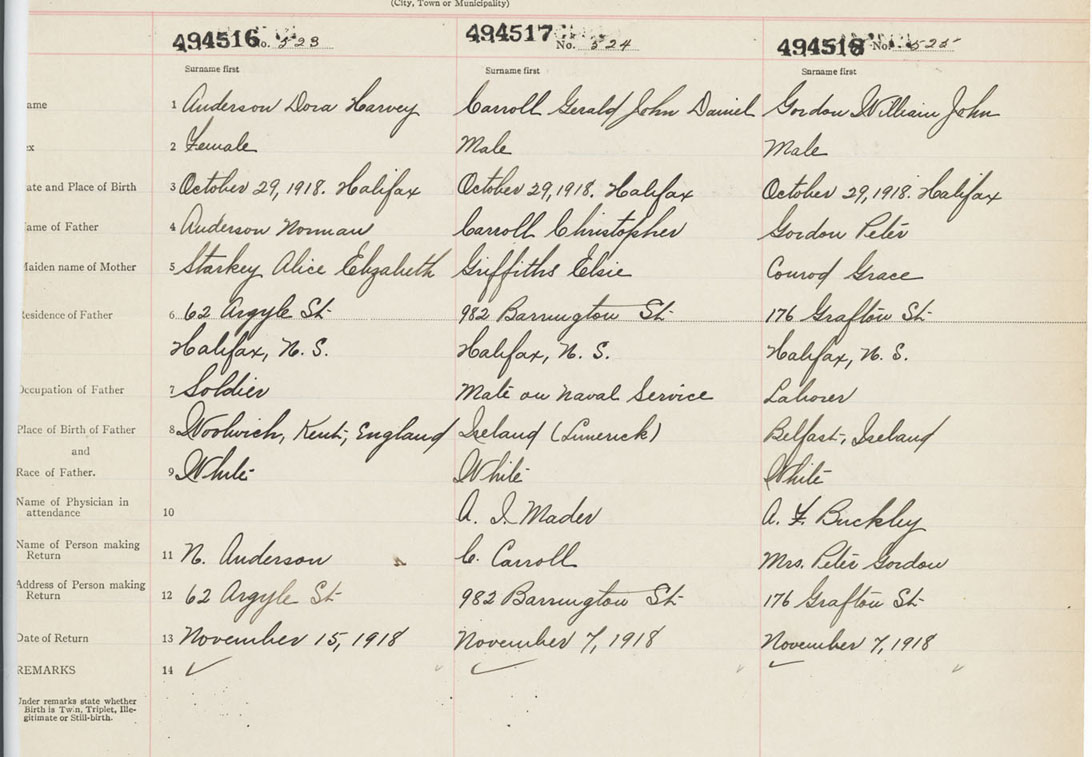 (City, Town or Municipality)
494516 No. 523 494517 No. 524 494518 No. 525
Surname first Surname first Surname first
ame 1 Anderson Dora Harvey Carroll Gerald John Daniel Gordon William John
ex 2 Female Male Male
ate and Place of Birth 3 October 29, 1918. Halifax October 29, 1918. Halifax October 29, 1918. Halifax
ame of Father 4 Anderson Norman Carroll Christopher Gordon Peter
Maiden name of Mother 5 Starkey Alice Elizabeth Griffiths Elsie Conrod Grace
Residence of Father 6 62 Argyle St 982 Barrington St 176 Grafton St
Halifax, N. S. Halifax, N. S. Halifax, N. S.
Occupation of Father 7 Soldier Mate on Naval Service Laborer
Place of Birth of Father 8 Woolwich, Kent, England Ireland (Limerick) Belfast, Ireland
and
Race of Father. 9 White White White
Name of Physician in
attendance 10 A. I. Mader A. F. Buckley
Name of Person making
Return 11 N. Anderson C. Carroll Mrs. Peter Gordon
Address of Person making
Return 12 62 Argyle St 982 Barrington St 176 Grafton St
Date of Return 13 November 15, 1918 November 7, 1918 November 7, 1918
REMARKS 14 ✓ ✓ ✓
Under remarks state whether
Birth is Twin, Triplet, Ille-
gitimate or Still-birth.